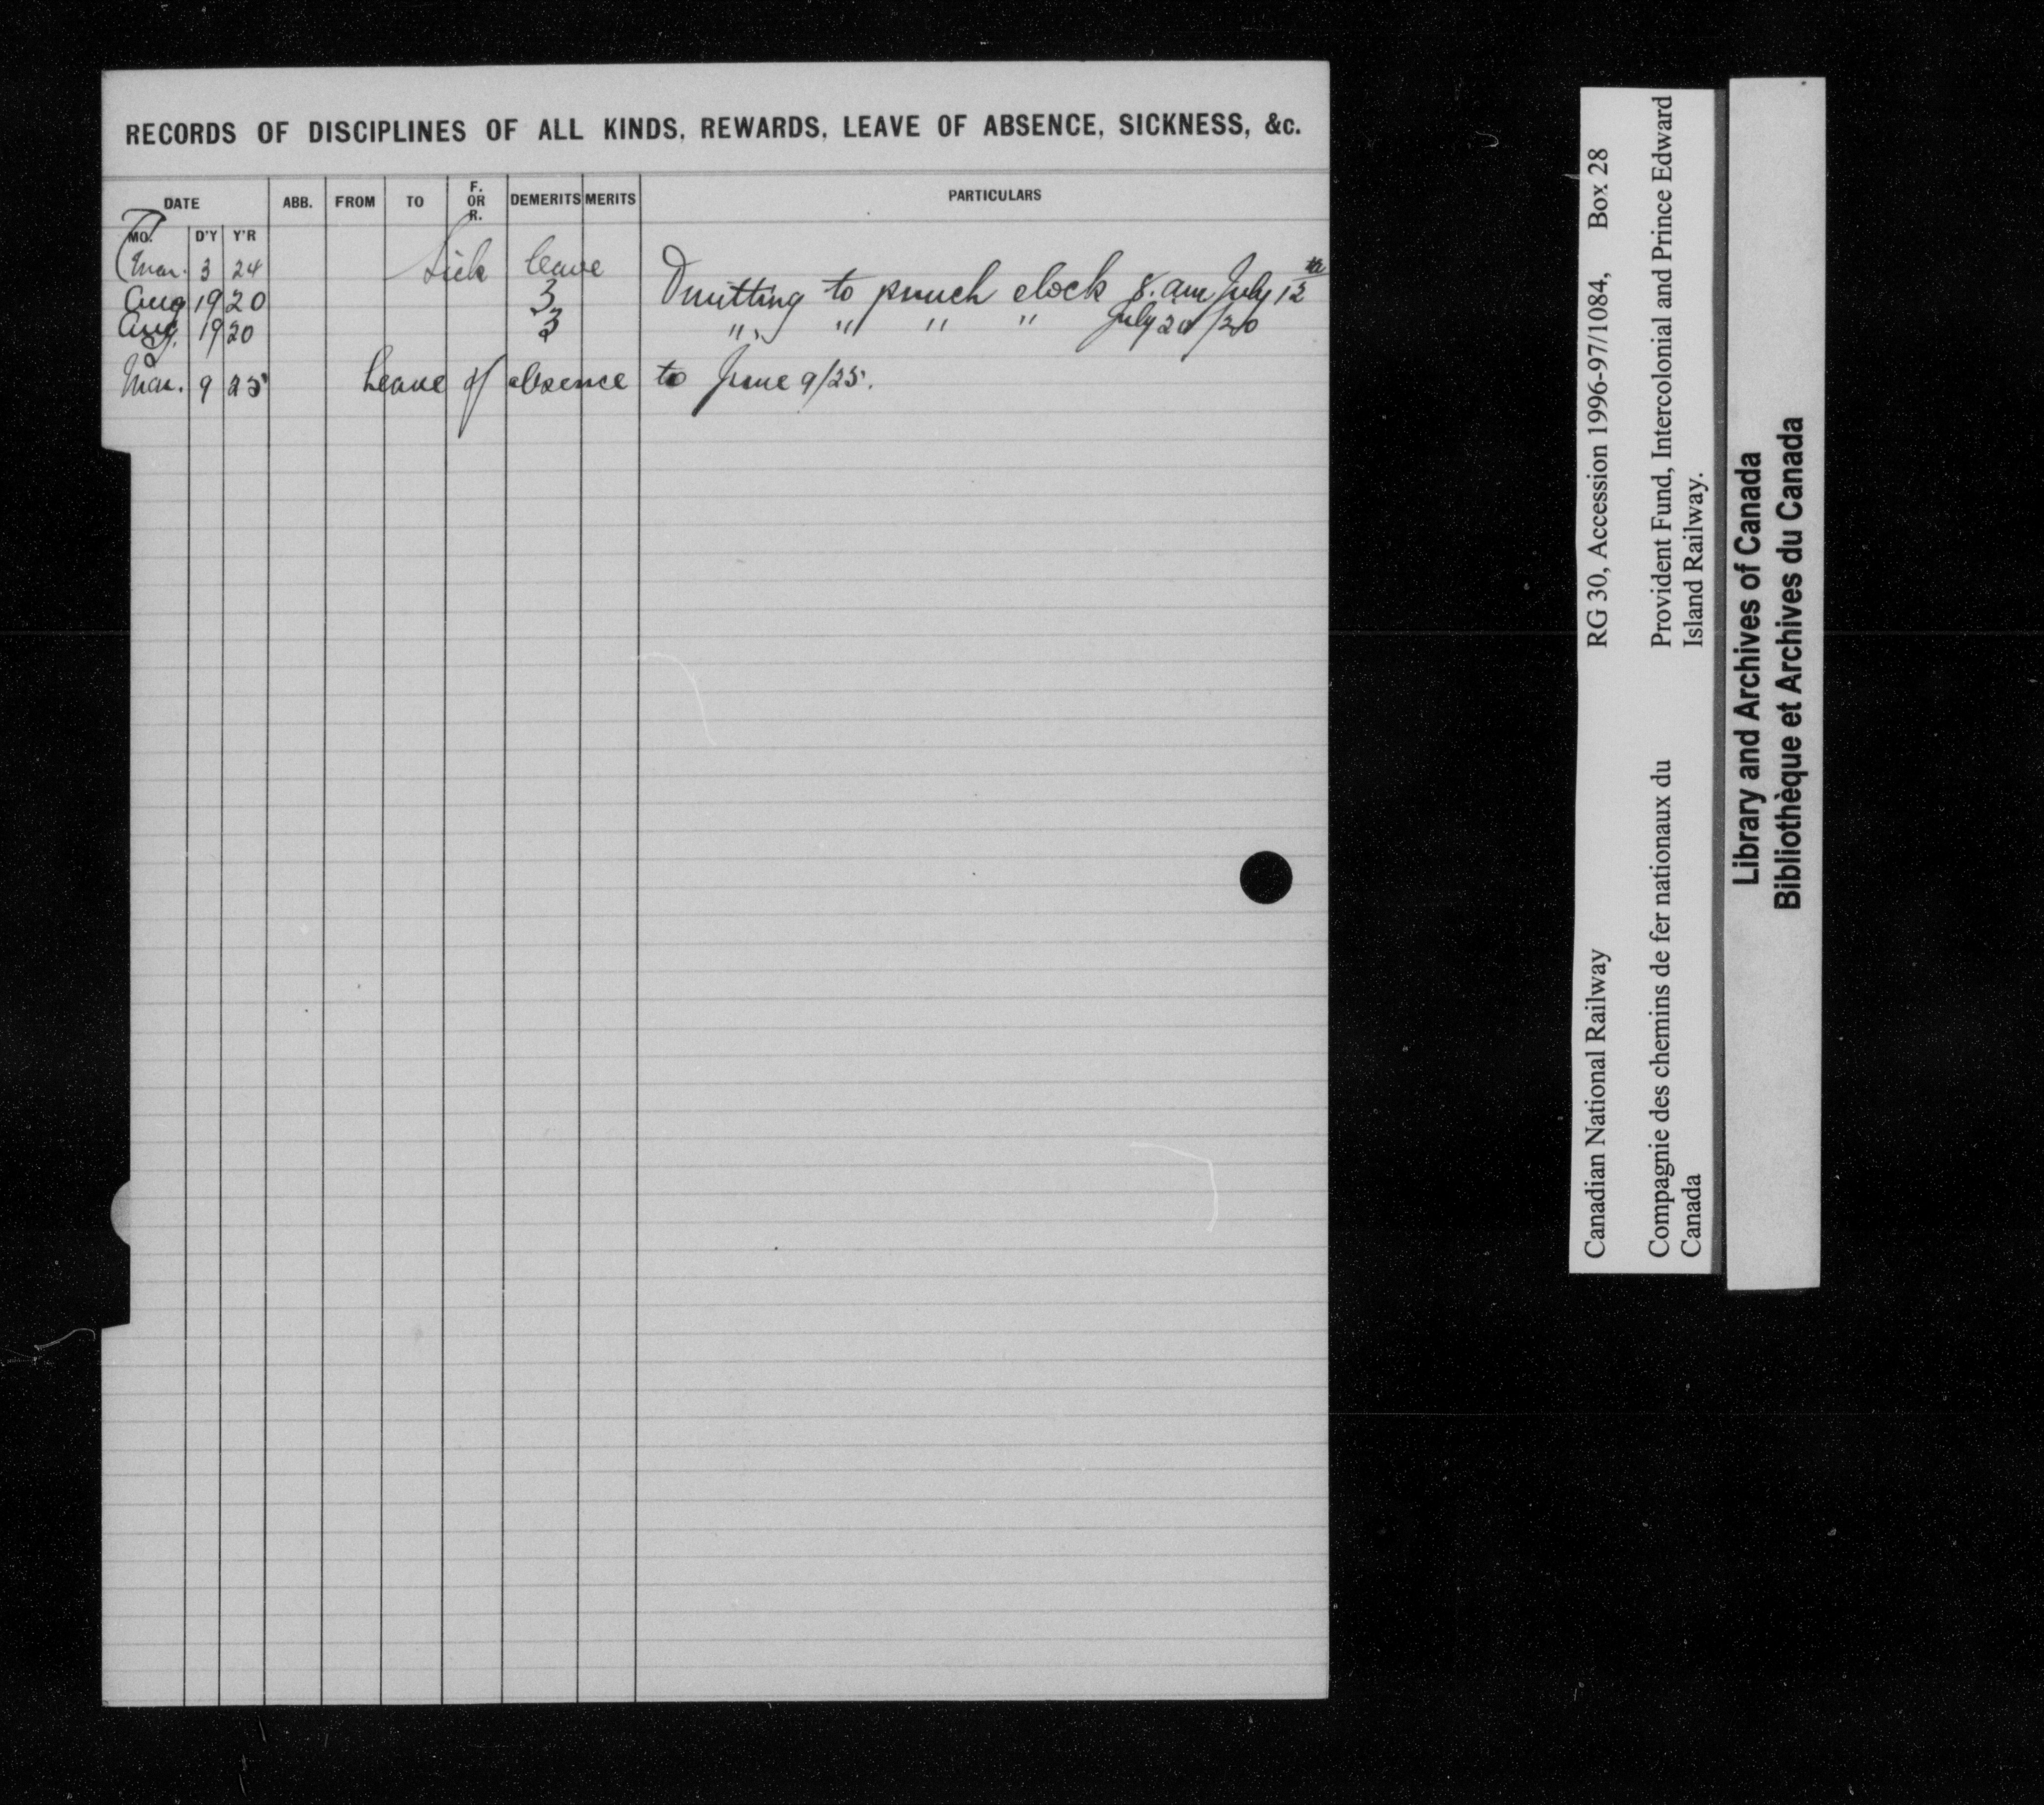 RECORDS OF DISCIPLINES OF ALL KINDS, REWARDS, LEAVE OF ABSENCE, SICKNESS, &c.
DATE ABB. FROM TO F. OR R. DEMERITS MERITS PARTICULARS
MO. D'Y Y'R
Mar. 3 24 Sick leave
Aug 19 20 3 Omitting to punch clock 8. am July 12th
Aug. 19 20 3 " " " " July 20/20
Mar. 9 25 Leave of absence to June 9/25.
Canadian National Railway RG 30, Accession 1996-97/1084, Box 28
Compagnie des chemins de fer nationaux du Provident Fund, Intercolonial and Prince Edward
Canada Island Railway.
Library and Archives of Canada
Bibliothèque et Archives du Canada